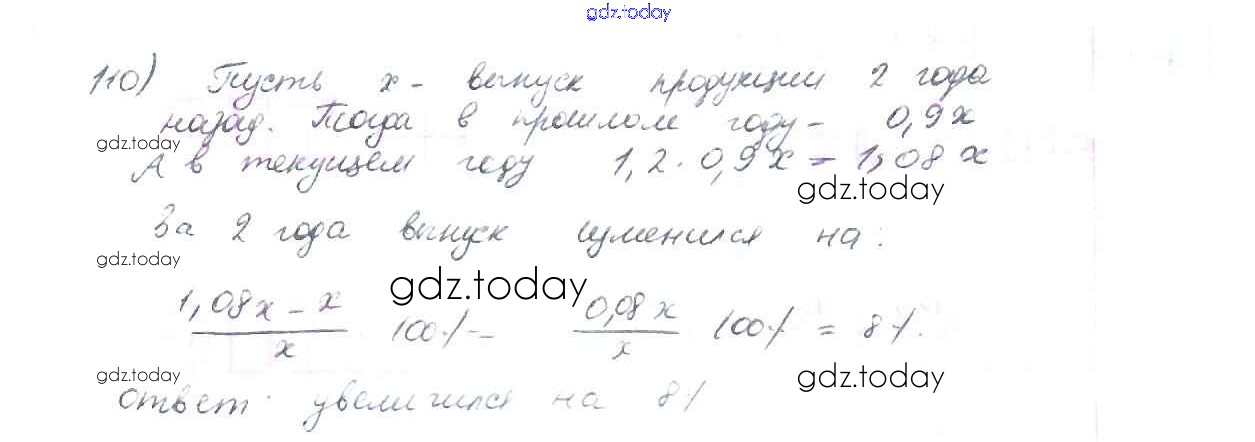 gdz.today
110) Пусть x - выпуск продукции 2 года
назад. Тогда в прошлом году - 0,9x
gdz.today
А в текущем году 1,2 · 0,9x = 1,08x
gdz.today
За 2 года выпуск изменился на:
gdz.today
gdz.today
1,08x - x / x 100% = 0,08x / x 100% = 8%.
gdz.today
gdz.today
ответ: увеличился на 8%